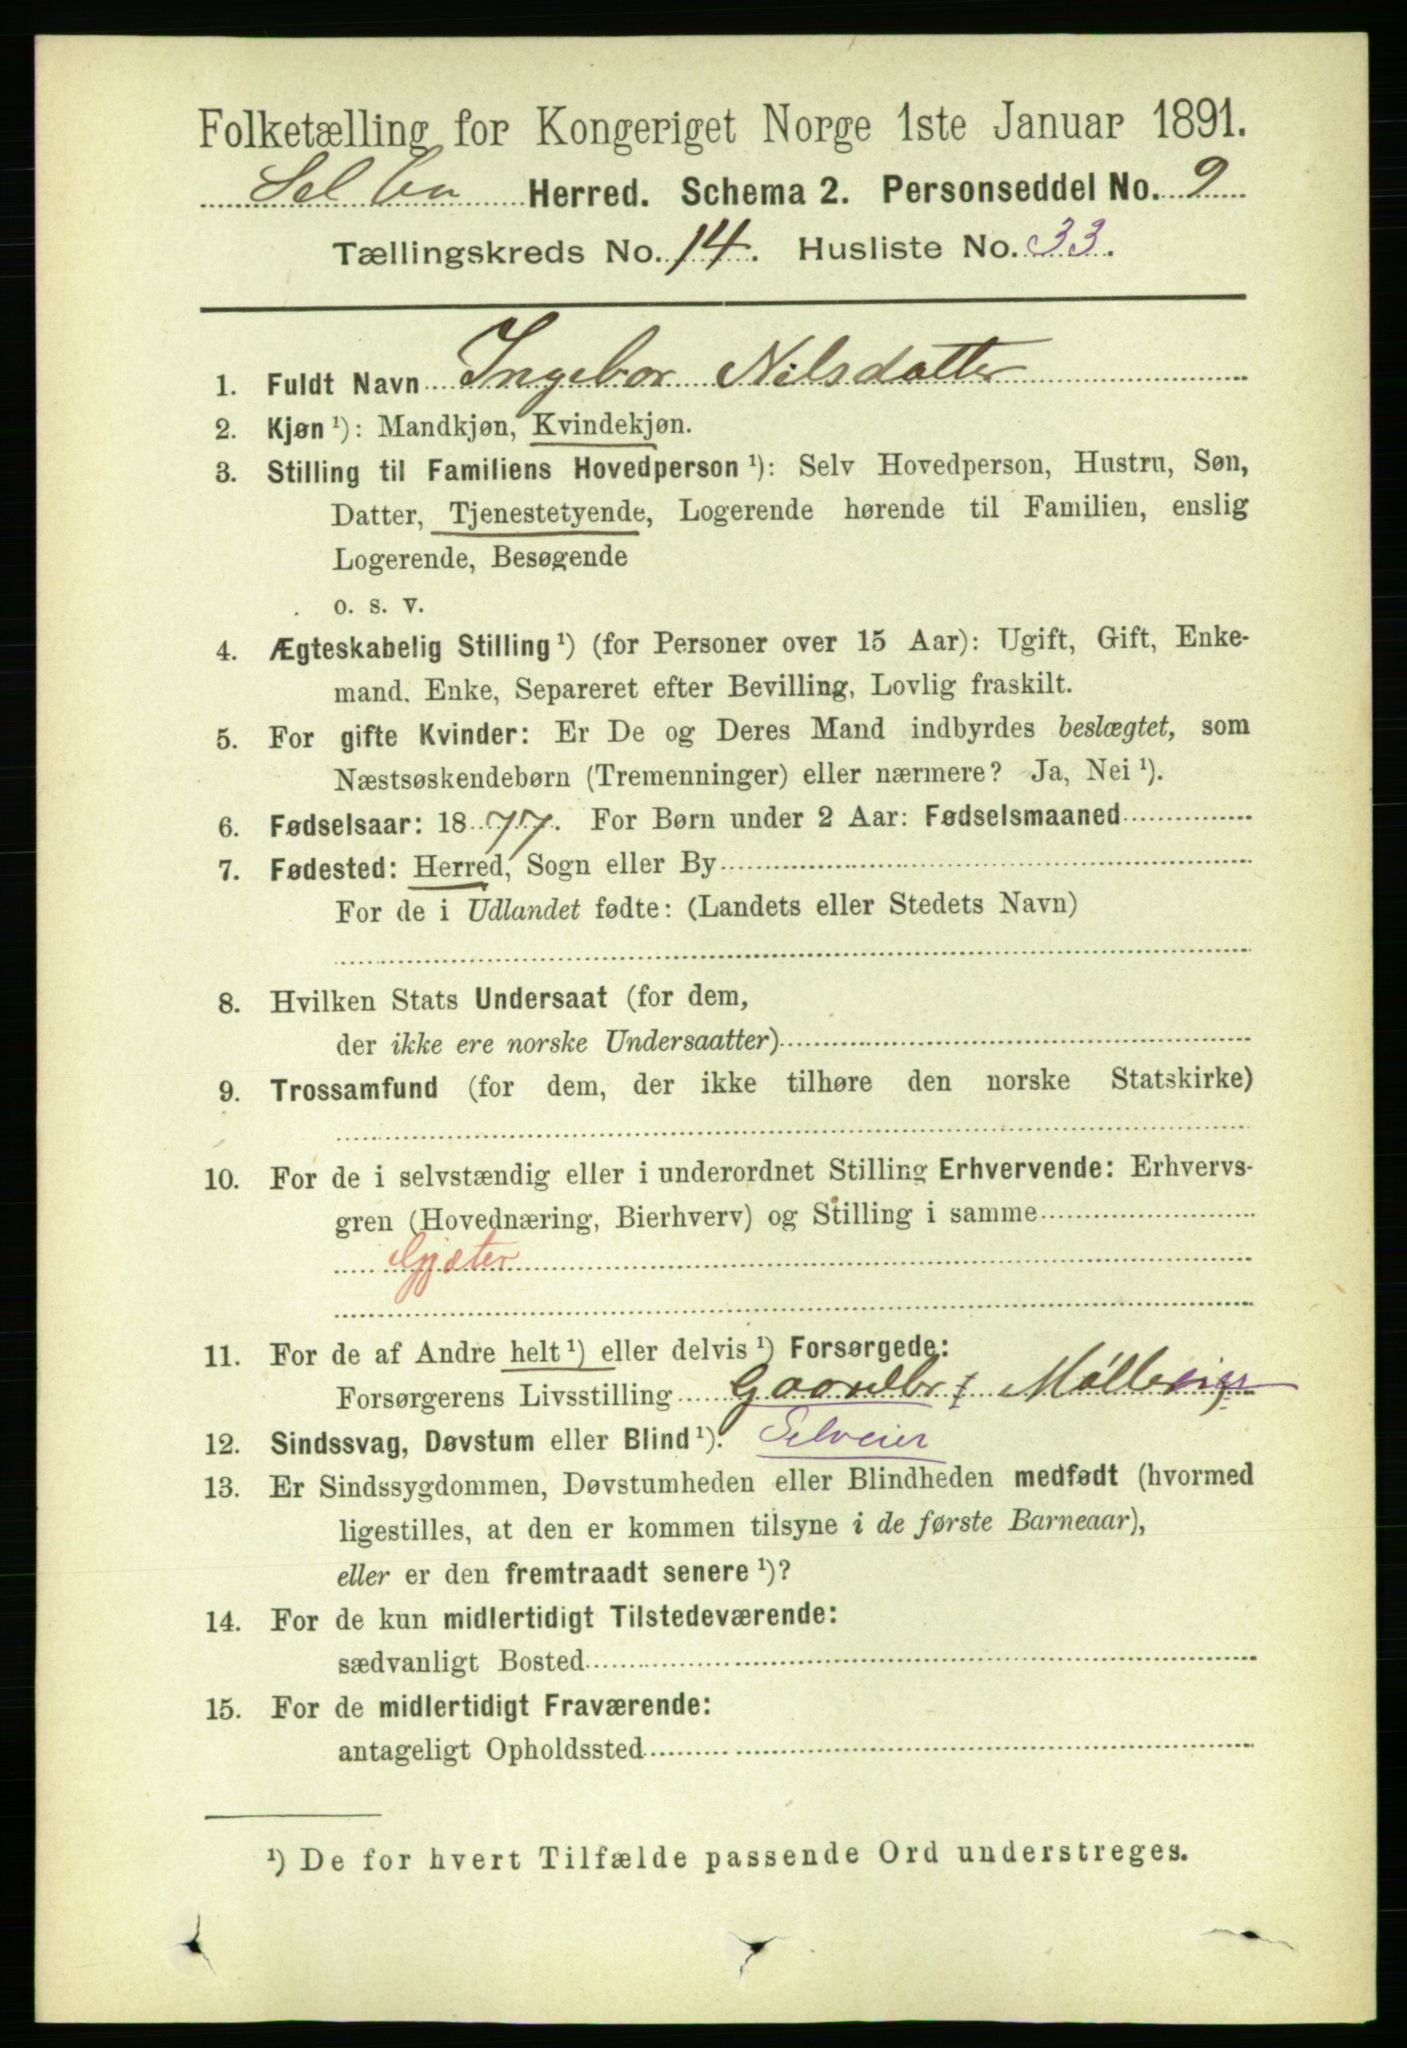 Folketælling for Kongeriget Norge 1ste Januar 1891.
Selbu Herred. Schema 2. Personseddel No. 9
Tællingskreds No. 14. Husliste No. 33.
1. Fuldt Navn Ingebor Nilsdatter
2. Kjøn ¹): Mandkjøn, Kvindekjøn.
3. Stilling til Familiens Hovedperson ¹): Selv Hovedperson, Hustru, Søn,
Datter, Tjenestetyende, Logerende hørende til Familien, enslig
Logerende, Besøgende
o. s. v.
4. Ægteskabelig Stilling ¹) (for Personer over 15 Aar): Ugift, Gift, Enke-
mand, Enke, Separeret efter Bevilling, Lovlig fraskilt.
5. For gifte Kvinder: Er De og Deres Mand indbyrdes beslægtet, som
Næstsøskendebørn (Tremenninger) eller nærmere? Ja, Nei ¹).
6. Fødselsaar: 1877. For Børn under 2 Aar: Fødselsmaaned
7. Fødested: Herred, Sogn eller By
For de i Udlandet fødte: (Landets eller Stedets Navn)
8. Hvilken Stats Undersaat (for dem,
der ikke ere norske Undersaatter)
9. Trossamfund (for dem, der ikke tilhøre den norske Statskirke)
10. For de i selvstændig eller i underordnet Stilling Erhvervende: Erhvervs-
gren (Hovednæring, Bierhverv) og Stilling i samme
Gjæter
11. For de af Andre helt ¹) eller delvis ¹) Forsørgede:
Forsørgerens Livsstilling Gaardbr
12. Sindssvag, Døvstum eller Blind ¹). Selveier
13. Er Sindssygdommen, Døvstumheden eller Blindheden medfødt (hvormed
ligestilles, at den er kommen tilsyne i de første Barneaar),
eller er den fremtraadt senere ¹)?
14. For de kun midlertidigt Tilstedeværende:
sædvanligt Bosted
15. For de midlertidigt Fraværende:
antageligt Opholdssted
¹) De for hvert Tilfælde passende Ord understreges.